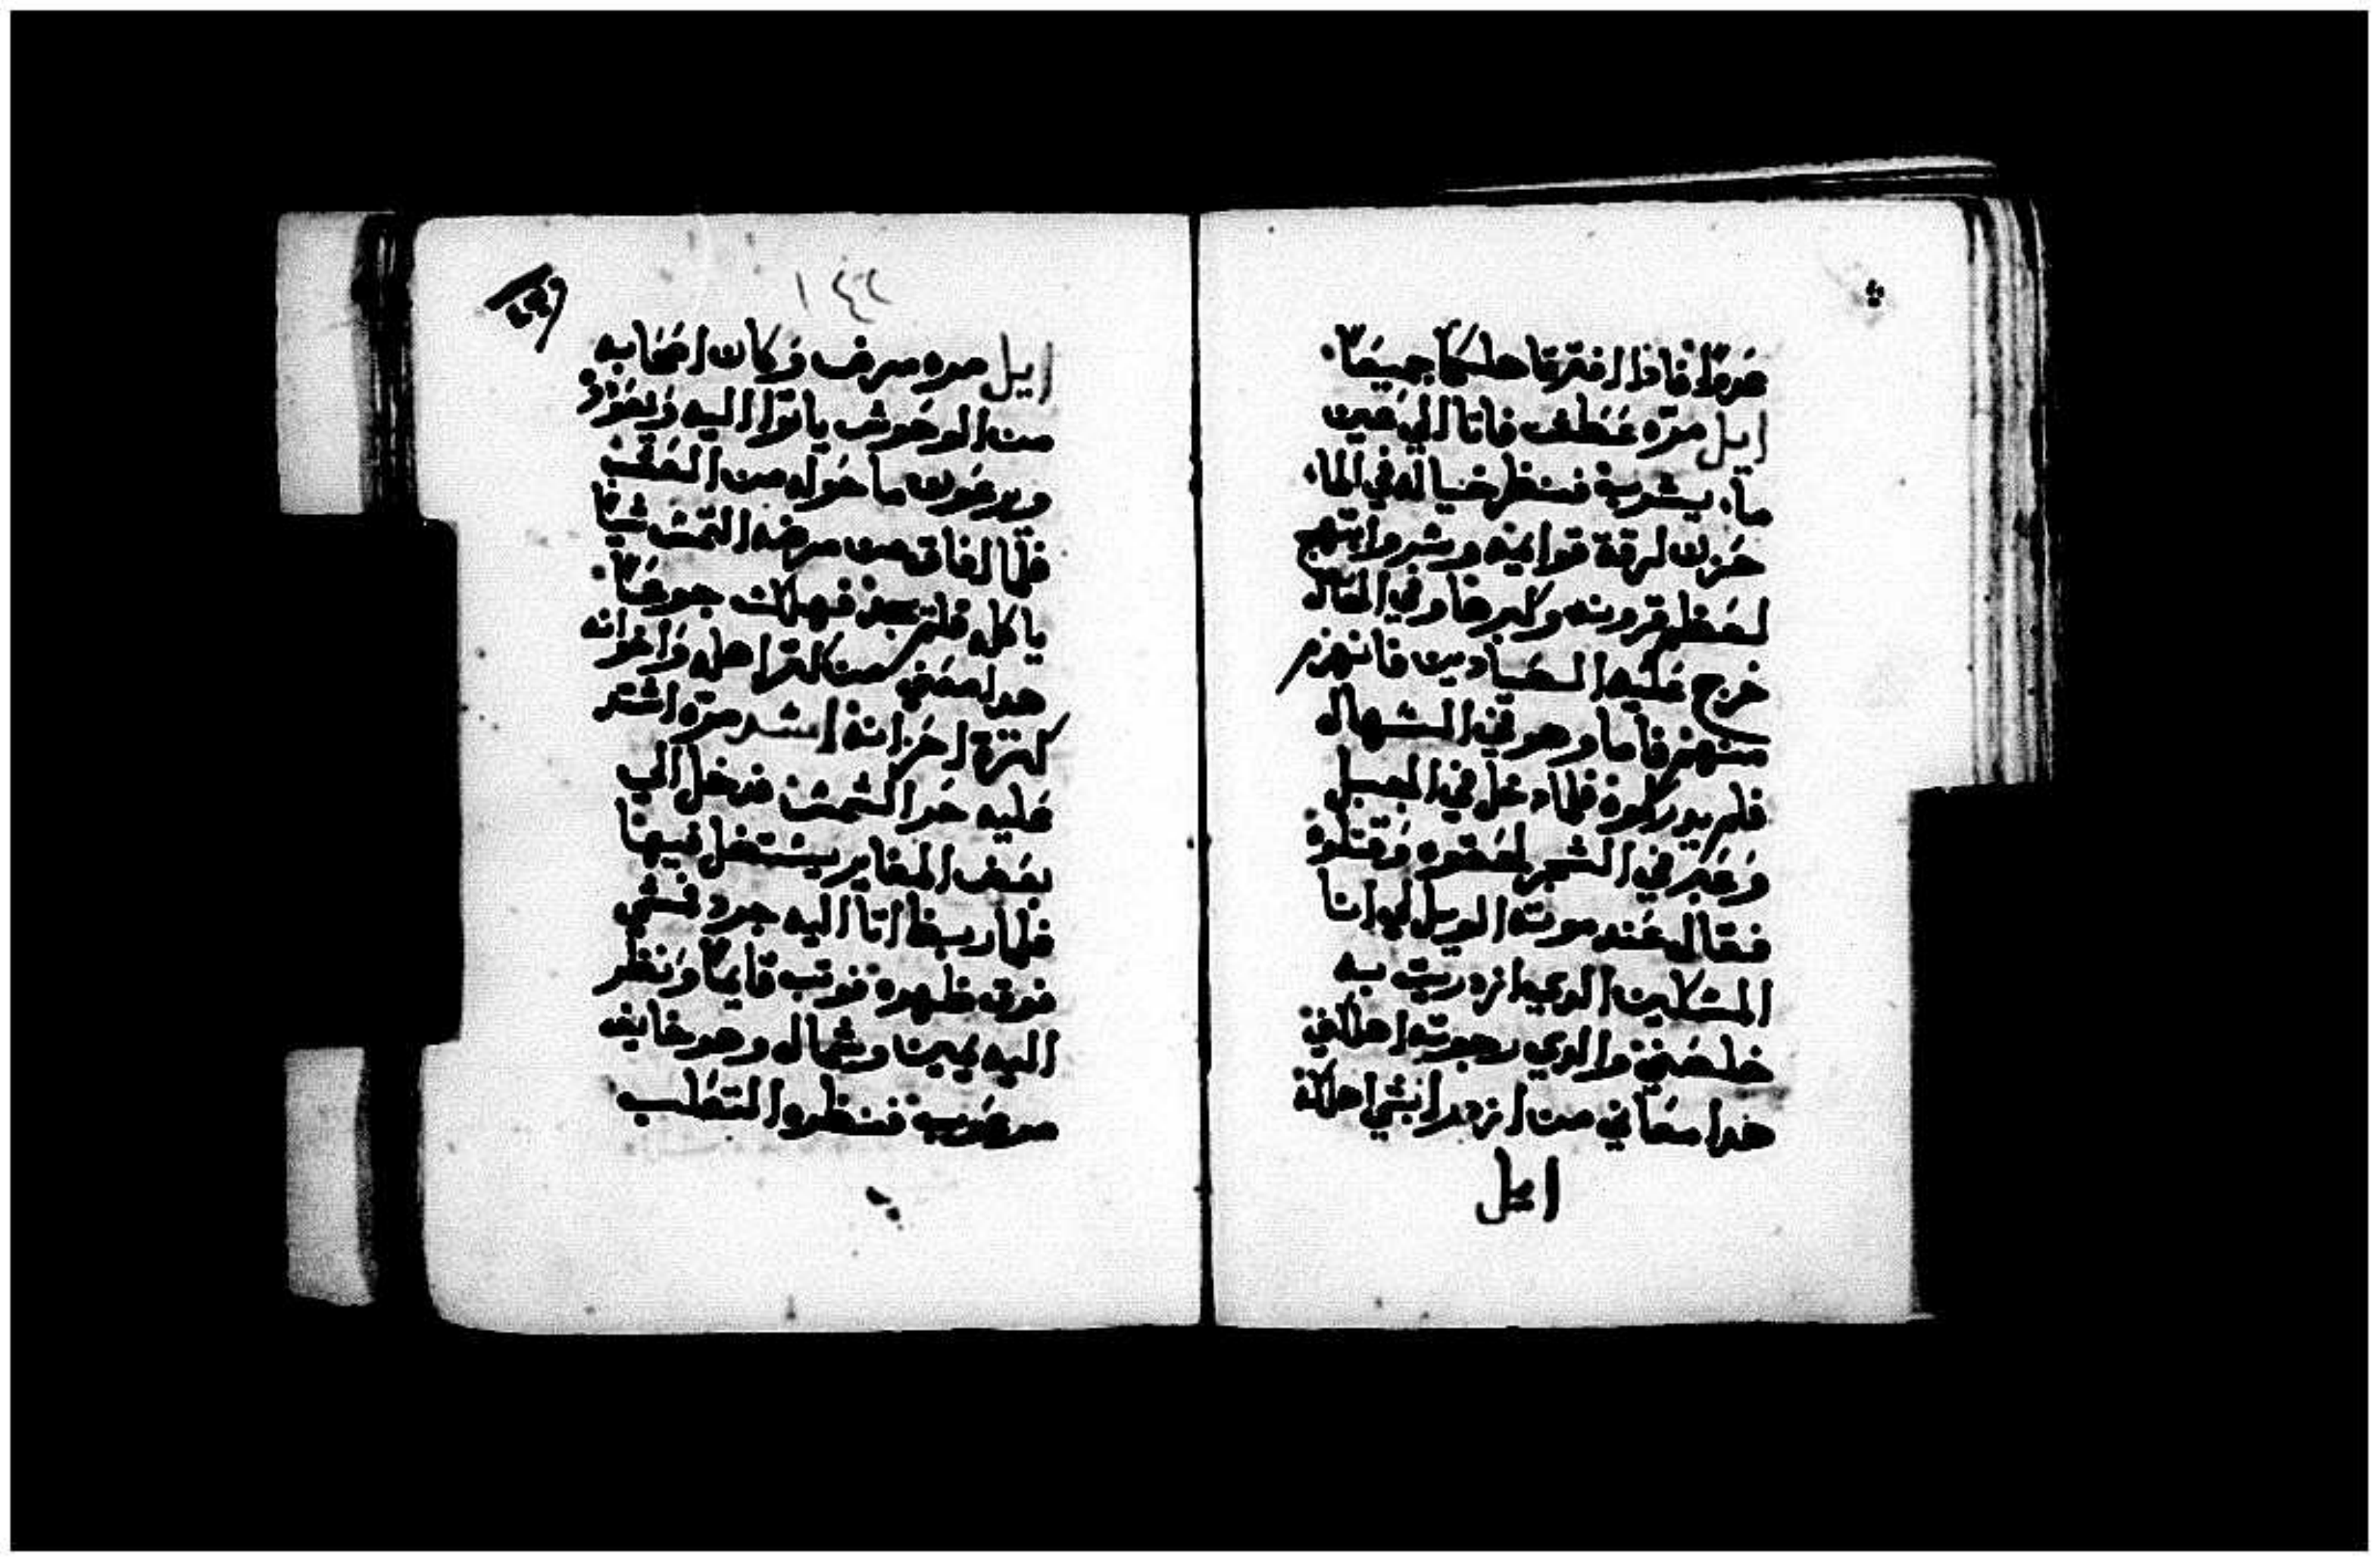 عدوا فاذا افترقا هلكا جميعا
ايل مره عطش فاتا الي عين
ماء يشربه فنظر خياله في الماء
حزن لرقة قوايمه وسر وابتهج
لعظم قرونه وكبرها وفي الحال
خرج عليه الصيادين فانهزم
منهم فاما وهو في السهال
فلم يدركوه فلما دخل في الجبل
وعبر في الشجر لحقوه وقتلوه
فقال عند موته الويل لي انا
المسكين الدي ازدريت به
خلصني والدي رجوته اهلكني
هدا معناه من ازدرا بشي اهلكه
ايل
١٤٢
ايل مره مرض وكان اصحابه
من الوحوش ياتوا اليه ويعودوه
ويرعون ما حوله من العشب
فلما افاق من مرضه التمس شيا
ياكله فلم يجد فهلك جوعا
هدا معني من كتر اهله واخوانه
كترة احزانه اسد مره اشتد
عليه حر الشمس فدخل الي
بعض المغاير يستظل فيها
فلما ربض اتا اليه جرد فمشي
فوق ظهره فوتب قايما ونظر
اليه يمين وشمال وهو خايف
مرعوب فنظره التعلب